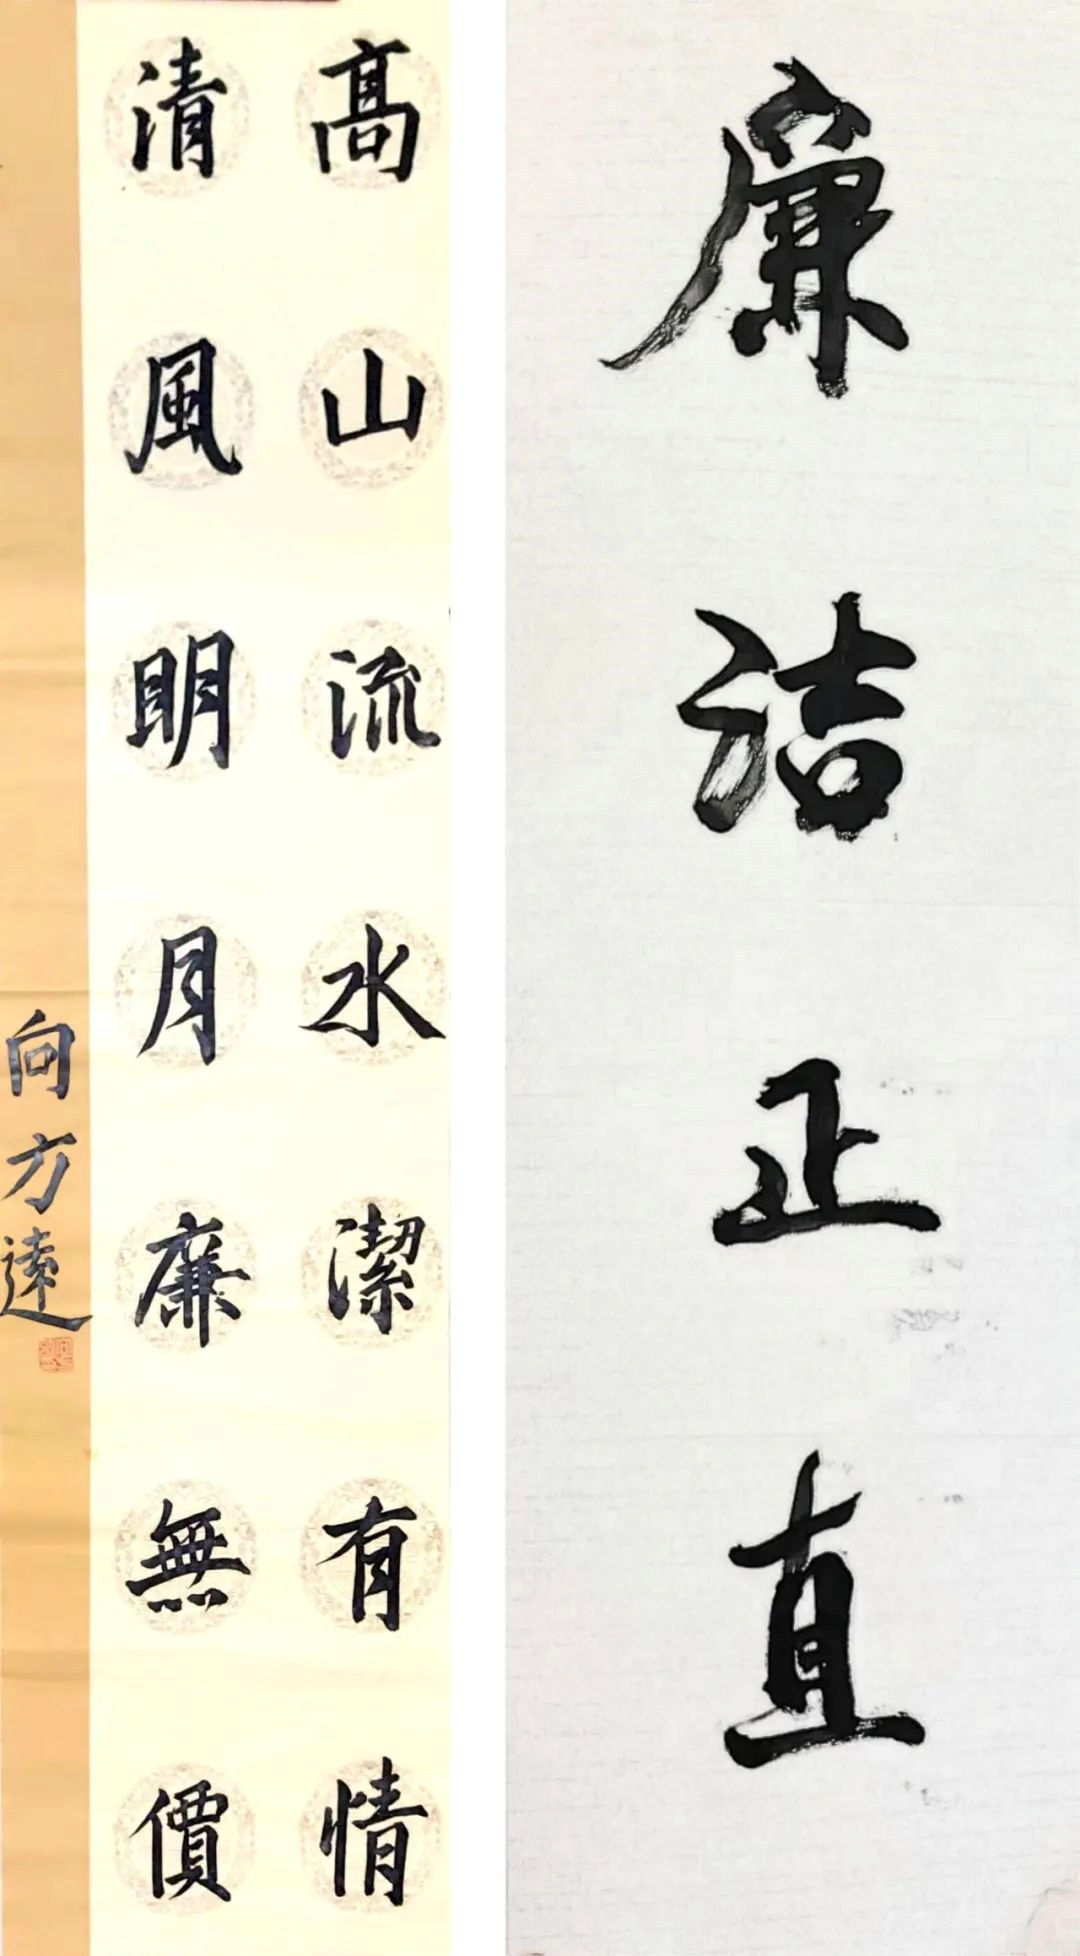 高山流水潔有情
清風明月廉無價
向方遠
廉洁正直